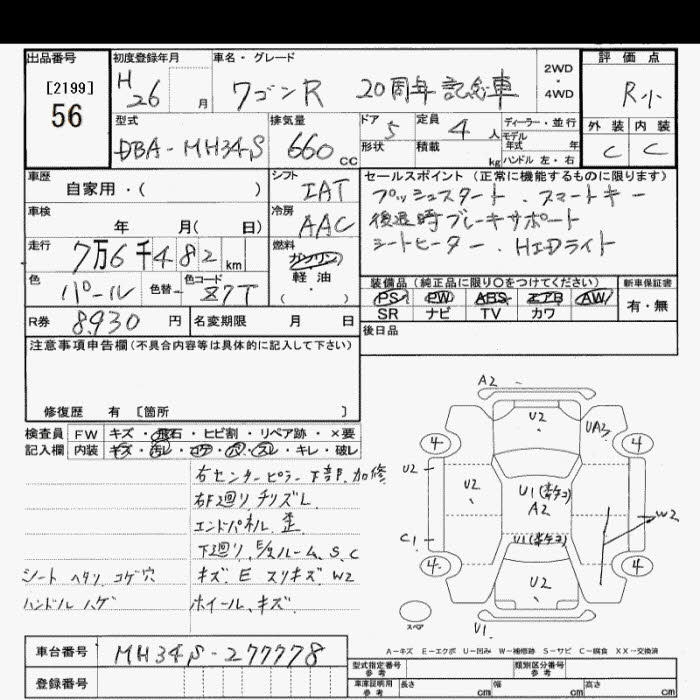 出品番号
[2199]
56
初度登録年月
H
26 月
車名・グレード
ワゴンR 20周年記念車
2WD
・
4WD
評価点
R小
型式
DBA-MH34S
排気量
660 CC
ドア 5
形状
定員 4 人
積載 kg
ディーラー・並行
モデル
年式 年
ハンドル 左・右
外装 内装
C C
車歴
自家用・( )
シフト
IAT
車検
年 月( 日)
冷房
AAC
走行
7万6千482 km
燃料
ガソリン
軽油
( )
色
パール
色替
色コード
Z7T
R券 8,930 円
名変期限 月 日
セールスポイント (正常に機能するものに限ります)
プッシュスタート、スマートキー
後退時ブレーキサポート
シートヒーター、HIDライト
装備品 (純正品に限り○をつけてください)
PS PW ABS エアB AW
SR ナビ TV カワ
新車保証書
有・無
後日品
注意事項申告欄(不具合内容等は具体的に記入して下さい)
修復歴 有 [箇所 ]
検査員 FW キズ・飛石・ヒビ割・リペア跡・×要
記入欄 内装 キズ・汚レ・コゲ・穴・スレ・キレ・破レ
右センターピラー下部 加修
右F廻り チリズレ
エンドパネル 歪
下廻り、E/ルーム、S、C
キズ、E スリキズ W2
ホイール、キズ
シート ヘタリ コゲ穴
ハンドル ハゲ
A2
U2
UA3
4
4
U2
U2
U1
A2
W2
C1
U1
4
4
U2
スペア
V1
A-キズ E-エクボ U-凹み W-補修跡 S-サビ C-腐食 XX-交換済
車台番号 MH34S-277778
登録番号
型式指定番号
参考
類別区分番号
参考
車庫証明用
参考
長さ cm
幅 cm
高さ cm